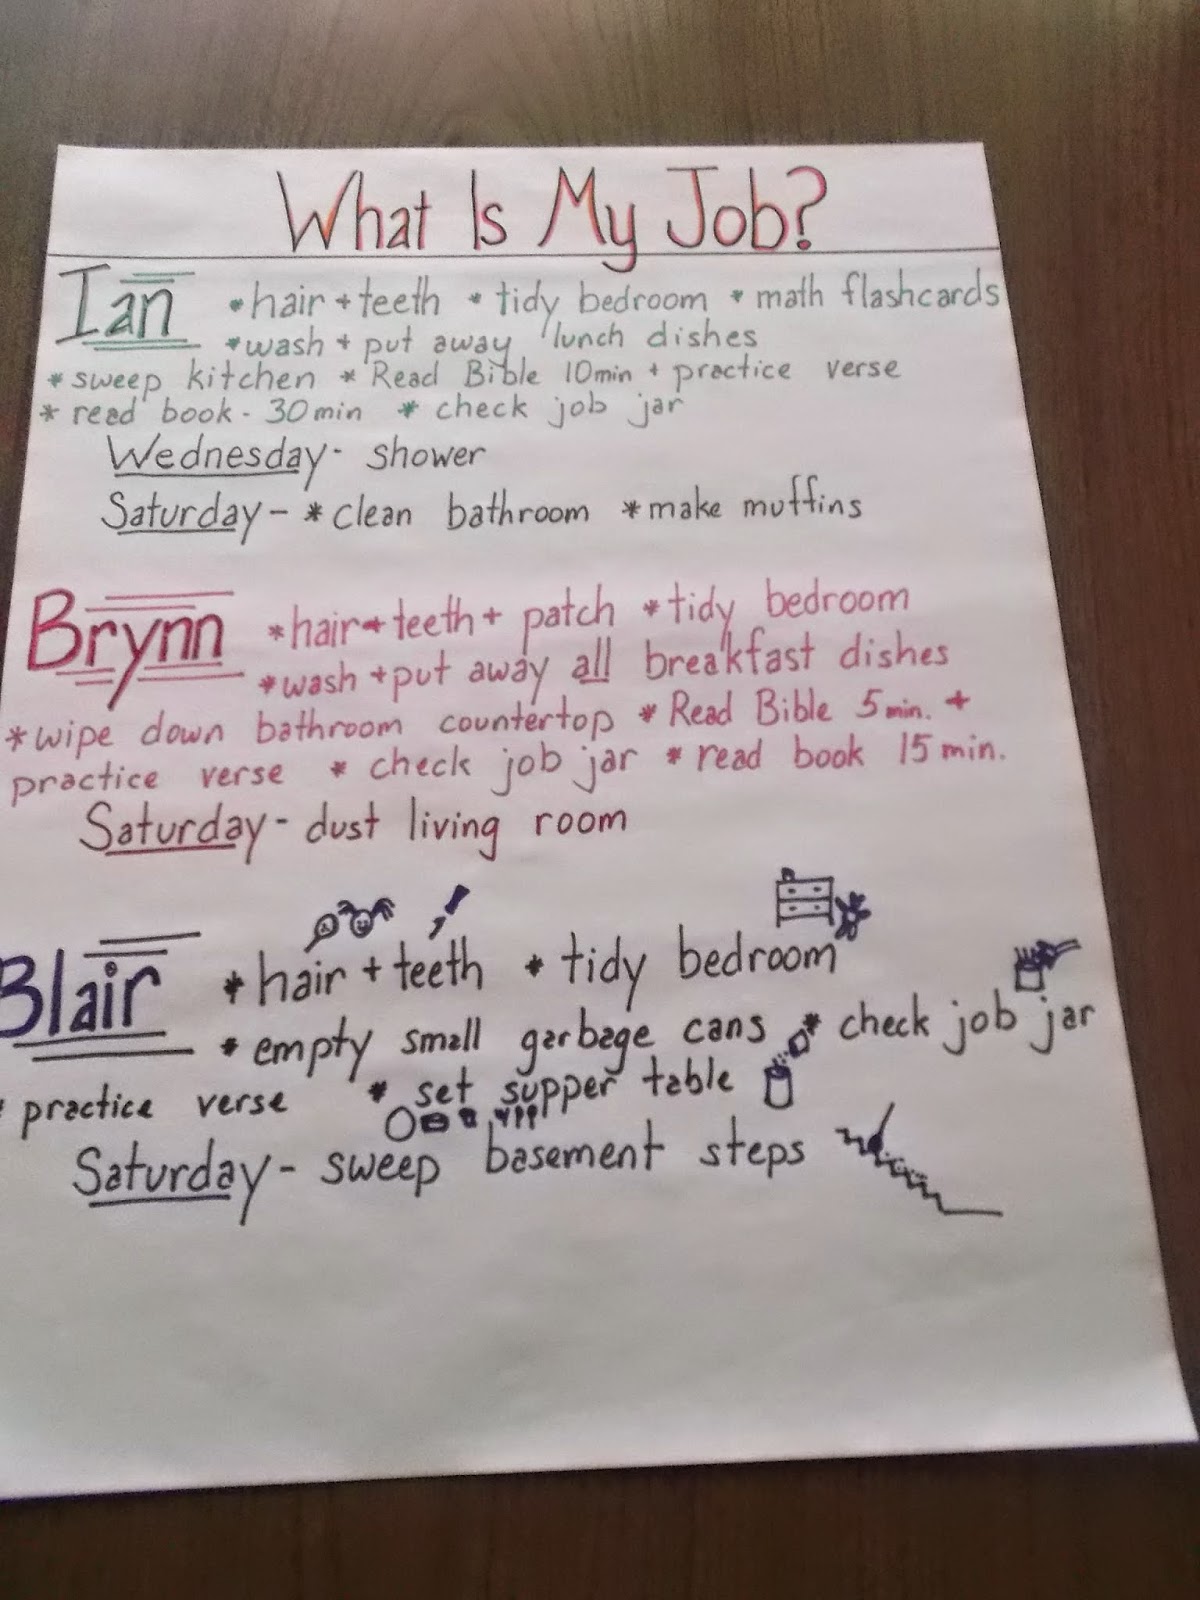 What Is My Job?
Ian * hair + teeth * tidy bedroom * math flashcards
* wash + put away lunch dishes
* sweep kitchen * Read Bible 10min + practice verse
* read book - 30min * check job jar
Wednesday - shower
Saturday - * clean bathroom * make muffins
Brynn * hair + teeth + patch * tidy bedroom
* wash + put away all breakfast dishes
* wipe down bathroom countertop * Read Bible 5min. +
practice verse * check job jar * read book 15min.
Saturday - dust living room
Blair * hair + teeth * tidy bedroom
* empty small garbage cans * check job jar
* practice verse * set supper table
Saturday - sweep basement steps